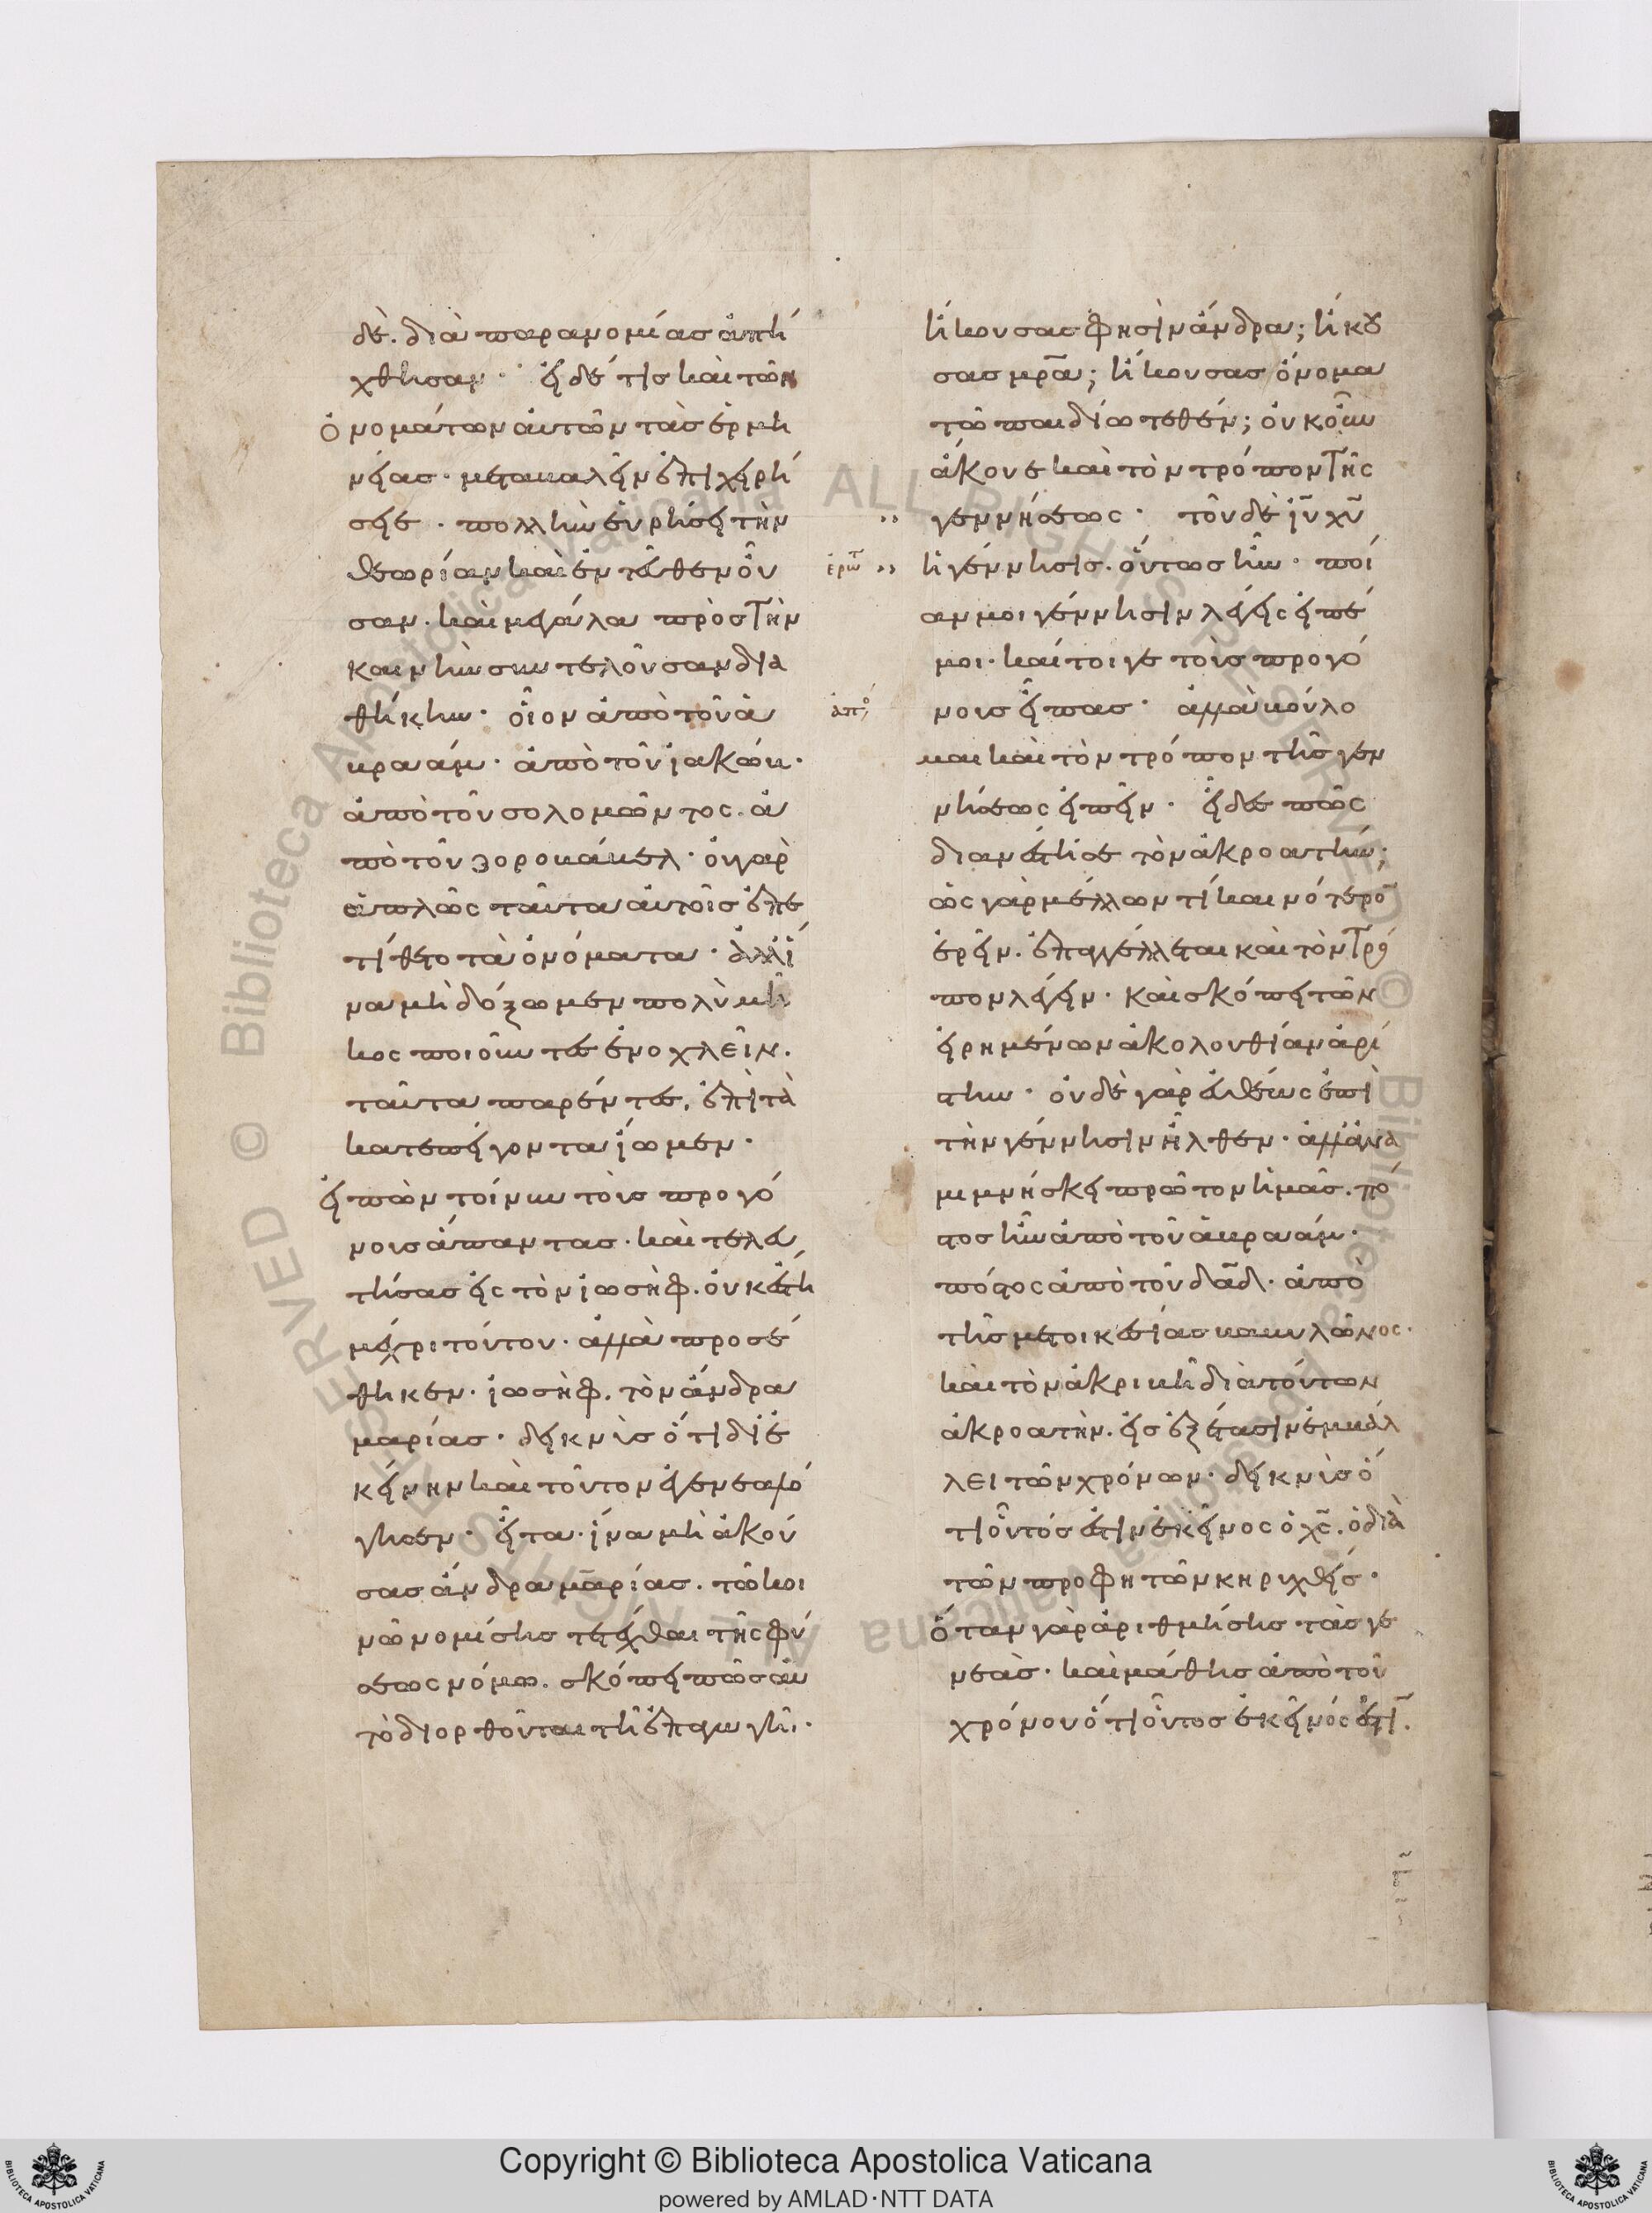 δὲ. διὰ παρανομίας ἀπή
χθησαν· εἰ δέ τις καὶ τῶν
ὀνομάτων αὐτῶν τὰς ἑρμη
νείας· μεταβαλεῖν ἐπιχειρή
σειε· πολλὴν εὑρήσει τὴν
θεωρίαν καὶ ἐντεῦθεν οὖ
σαν· καὶ μεγάλα πρὸς τὴν
καινὴν συντελοῦσαν δια
θήκην· οἷον ἀπὸ τοῦ ἀ
βραάμ· ἀπὸ τοῦ ἰακώβ·
ἀπὸ τοῦ σολομῶντος· ἀ
πὸ τοῦ ζοροβάβελ· οὐ γὰρ
ἁπλῶς ταῦτα αὐτοῖς ἐπε
τίθετο τὰ ὀνόματα· ἀλλ' ἵ
να μὴ δόξωμεν πολὺ μῆ
κος ποιοῦντες ἐνοχλεῖν.
ταῦτα παρέντες, ἐπὶ τὰ
κατεπείγοντα ἴωμεν·
εἰπὼν τοίνυν τοὺς προγό
νους ἅπαντας· καὶ τελευ
τήσας εἰς τὸν ἰωσὴφ. οὐκ ἔστη
μέχρι τούτου· ἀλλὰ προσέ
θηκεν· ἰωσὴφ. τὸν ἄνδρα
μαρίας· δεικνὺς ὅτι δι' ἐ
κείνην καὶ τοῦτον ἐγενεαλό
γησεν· εἶτα· ἵνα μὴ ἀκού
σας ἄνδρα μαρίας. τῶ κοι
νῶ νομίσης τετέχθαι τῆς φύ
σεως νόμω. σκόπει πῶς αὐ
τὸ διορθοῦται τῆ ἐπαγωγῆ·
ἤκουσας φησὶν ἄνδρα; ἤκου
σας μρ̅α; ἤκουσας ὄνομα
τῶ παιδίω τεθέν; οὐκοῦν
ἄκουε καὶ τὸν τρόπον τῆς
γεννήσεως· τοῦ δὲ ἰυ̅ χυ̅
ἐρωτ
ἡ γέννησις. οὕτως ἦν· ποί
αν μοι γέννησιν λέγεις εἰπέ
μοι· καίτοιγε τοὺς προγό
ἀπό
νους εἶπας· ἀλλὰ βούλο
μαι καὶ τὸν τρόπον τῆς γεν
νήσεως εἰπεῖν· εἶδες πῶς
διανέστησε τὸν ἀκροατήν;
ὡς γὰρ μέλλων τι καινότερον
ἐρεῖν. ἐπαγγέλλεται καὶ τὸν τρό
πον λέγειν· καὶ σκόπει τῶν
εἰρημένων ἀκολουθίαν ἀρί
στην· οὐδὲ γὰρ εὐθέως ἐπὶ
τὴν γέννησιν ἦλθεν· ἀλλ' ἀνα
μιμνήσκει πρῶτον ἡμᾶς. πό
στος ἦν ἀπὸ τοῦ ἀβραάμ·
πόστος ἀπὸ τοῦ δα̅δ· ἀπὸ
τῆς μετοικεσίας βαβυλῶνος·
καὶ τὸν ἀκριβῆ διὰ τούτων
ἀκροατὴν. εἰς ἐξέτασιν ἐμβάλ
λει τῶν χρόνων· δεικνὺς ὅ
τι οὗτός ἐστιν ἐκεῖνος ὁ χς̅. ὁ διὰ
τῶν προφητῶν κηρυχθείς·
ὅταν γὰρ ἀριθμήσης τὰς γε
νεὰς· καὶ μάθης ἀπὸ τοῦ
χρόνου ὅτι οὗτος ἐκεῖνός ἐστι.